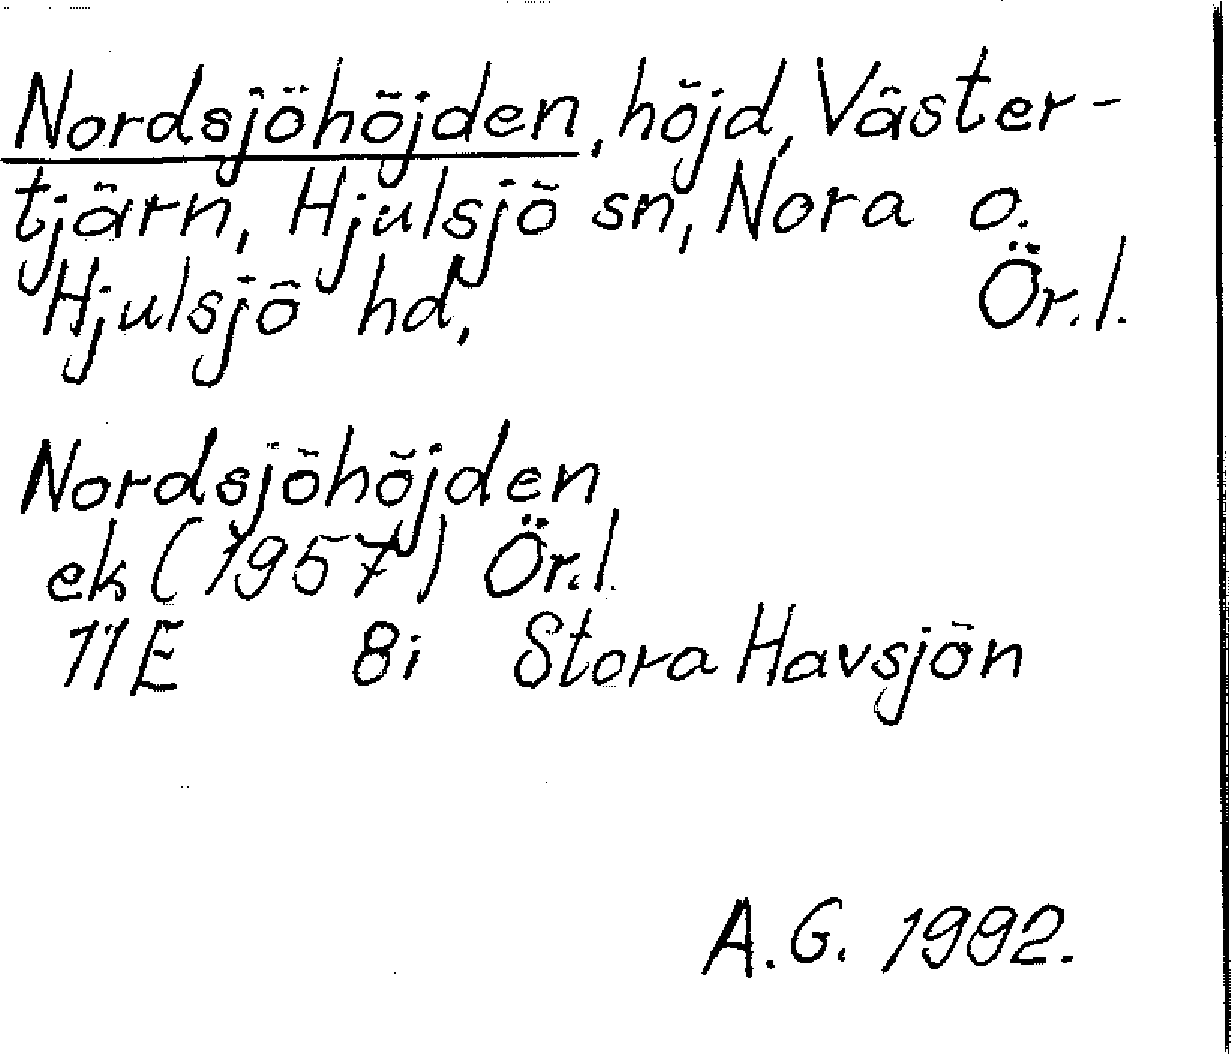 Nordsjöhöjden, höjd, Väster-
tjärn, Hjulsjö sn, Nora o.
Hjulsjö hd, Ör.l.
Nordsjöhöjden
ek (1957) Ör.l.
11E 8i Stora Havsjön
A.G. 1992.